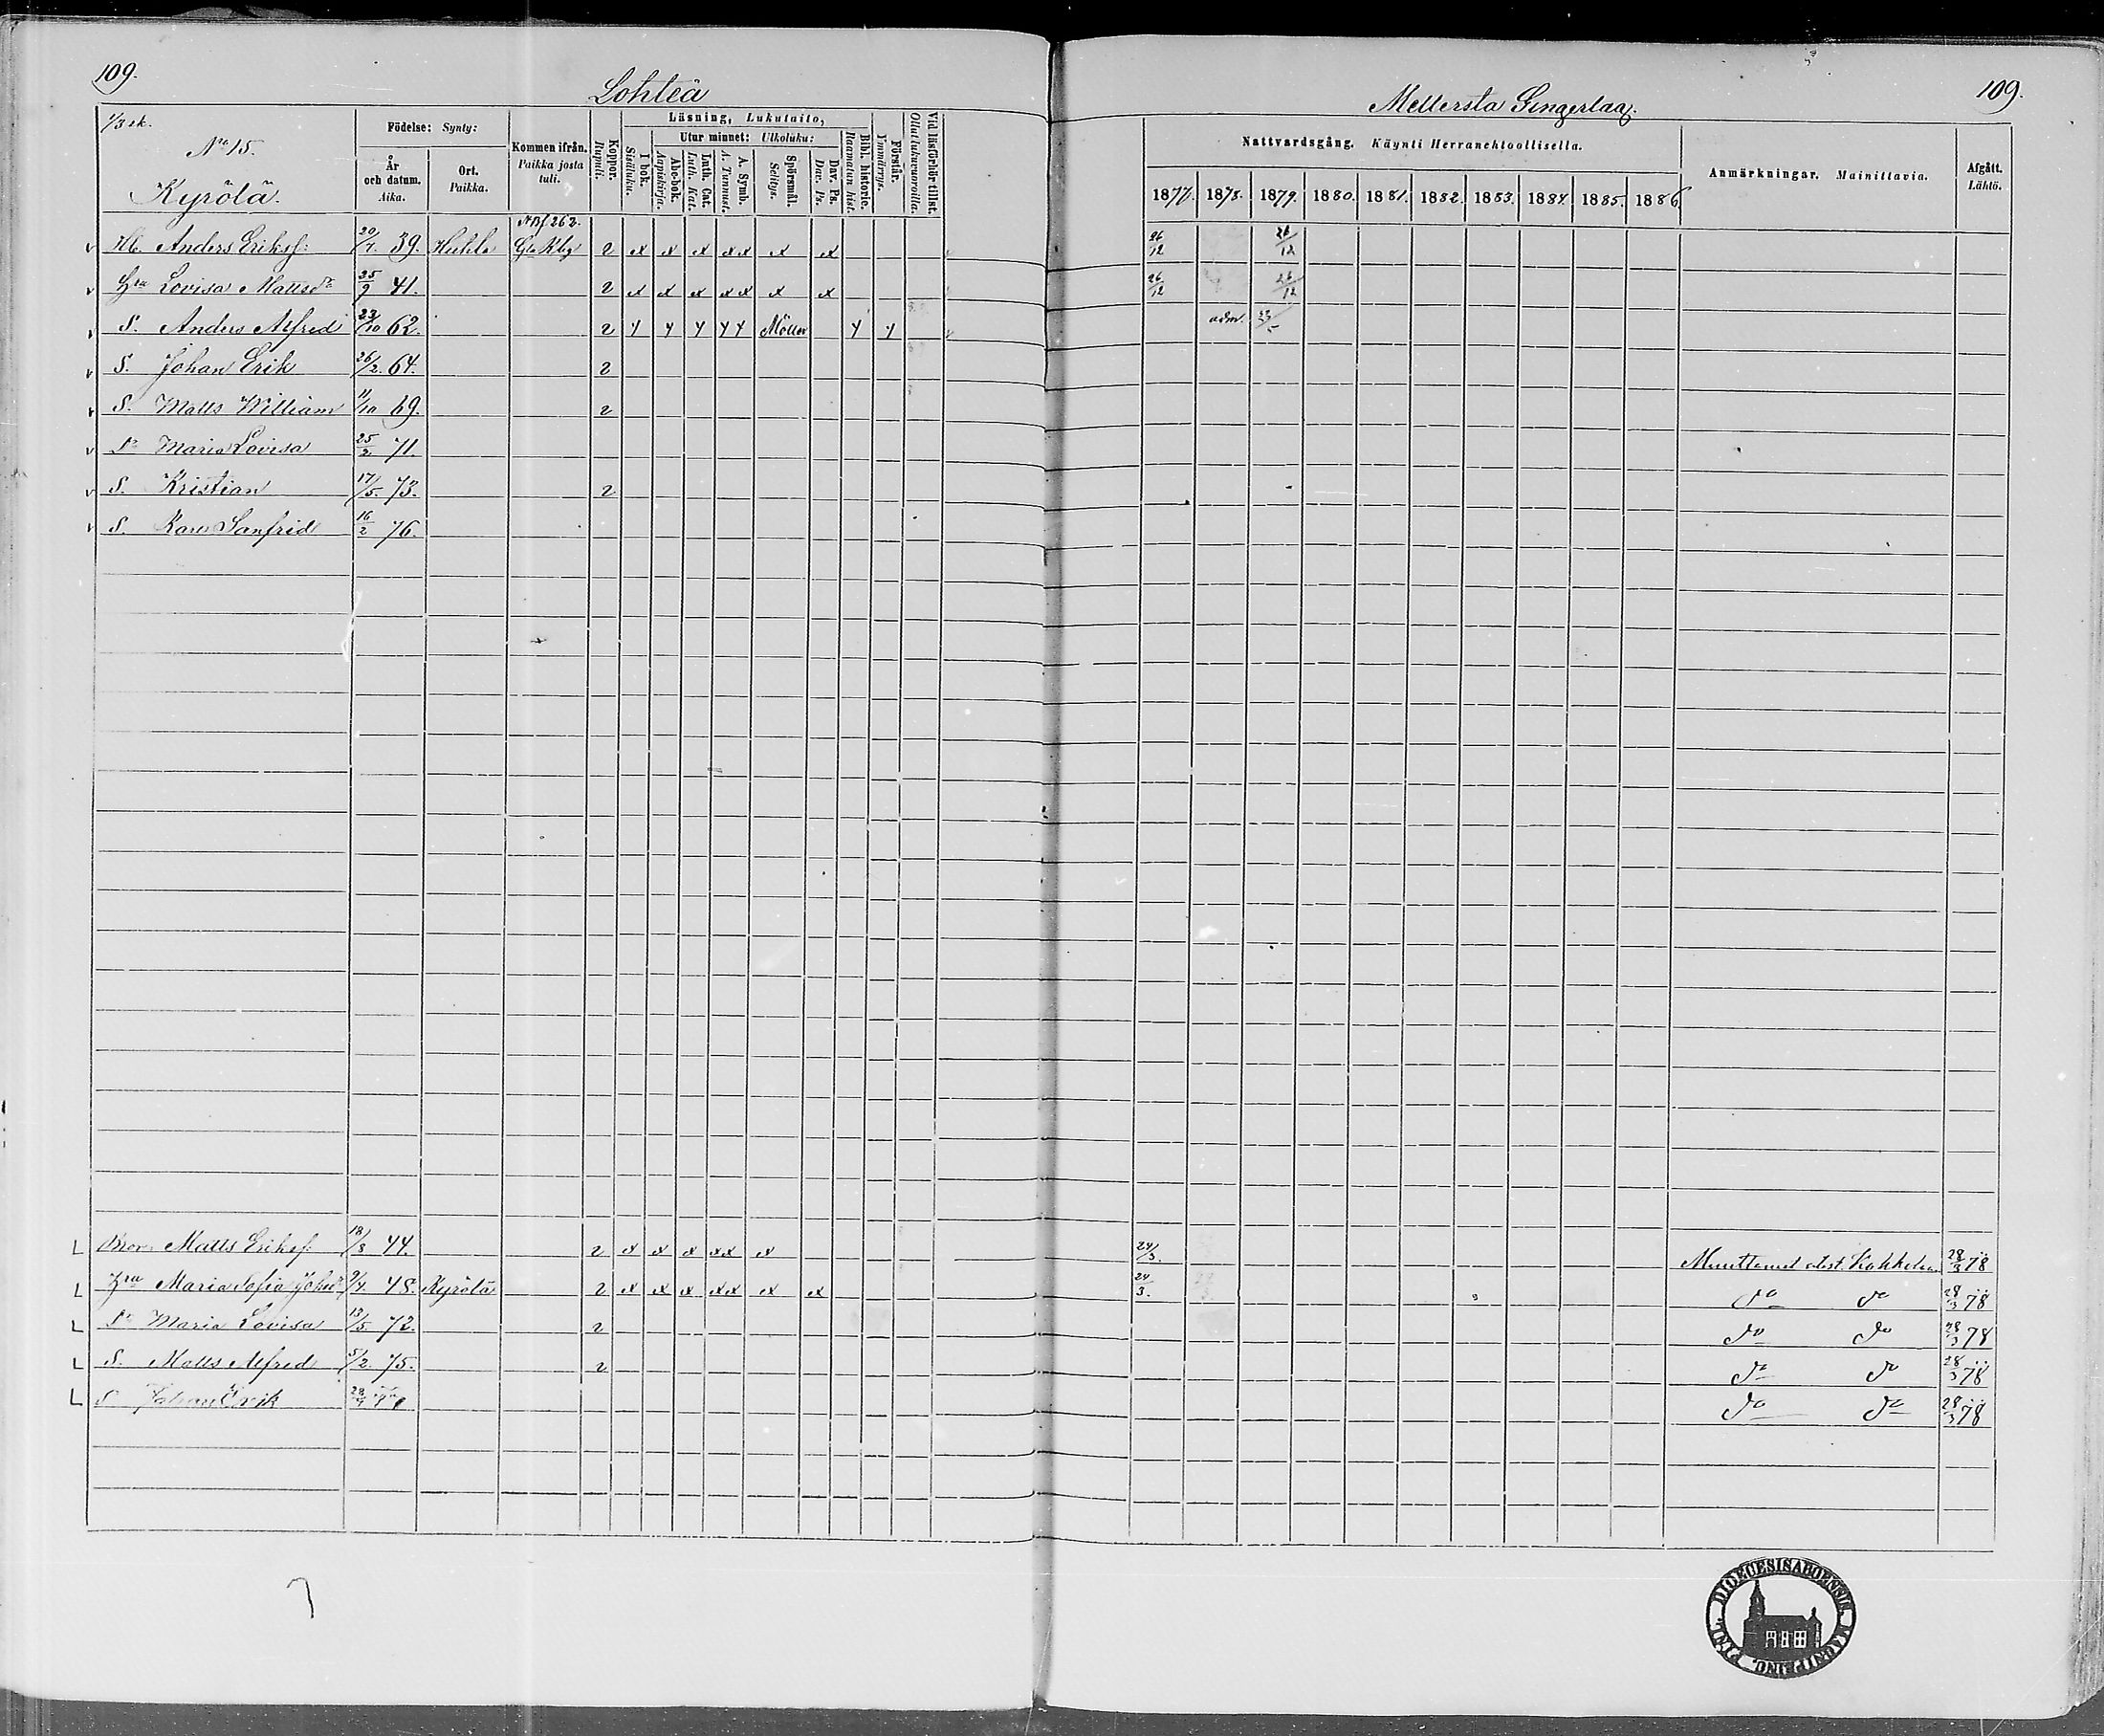 109.
Lohteå
Mellersta Gingerlag.
109.
1/3 sk.
No 15.
Kyrölä.
Födelse: Synty:
År och datum. Aika.
Ort. Paikka.
Kommen ifrån. Paikka josta tuli.
Koppor. Rupuli.
Läsning, Lukutaito,
I bok. Sisäluku.
Utur minnet: Ulkoluku:
Abc-bok. Aapiskirja.
Luth. Cat. Luth. Kat.
A. Symb. A. Tunnust.
Spörsmål. Selitys.
Dav. Ps. Dav. Ps.
Bibl. historie. Raamatun hist.
Förstår. Ymmärrys.
Vid läsförhör tillst. Ollut lukuvuoroilla.
Nattvardsgång. Käynti Herranehtoollisella.
1877. 1878. 1879. 1880. 1881. 1882. 1883. 1884. 1885. 1886
Anmärkningar. Mainittavia.
Afgått. Lähtö.
v Hb. Anders Eriksf: 20/7. 39. 2 x x x xx x x 26/12 26/12
v Hu Lovisa Mattsdr 25/9 41. 2 x x x xx x x 26/12 26/12
v S. Anders Alfred 23/10 62. 2 y y y yy Möller y y adm.
v S. Johan Erik 26/2. 64. 2
v S. Matts William 11/10 69. 2
v Dr Maria Lovisa 25/2 71
v S. Kristian 17/5. 73. 2
v S. Karl Sanfrid 16/2 76.
L Bror Matts Eriksf: 18/8 44. 2 x x x xx x 24/3. 28/3 78
L Hu Maria Sofia Johsdr 9/4. 48. Kyrölä 2 x x x xx x x 24/3. do do 28/3 78
L Dr Maria Lovisa 13/5 72. 2 do do 28/3 78
L S. Matts Alfred 5/2. 75. 2 do do 28/3 78
L S Johan Erik do do 28/3 78
DIOECESIS ABOENSIS